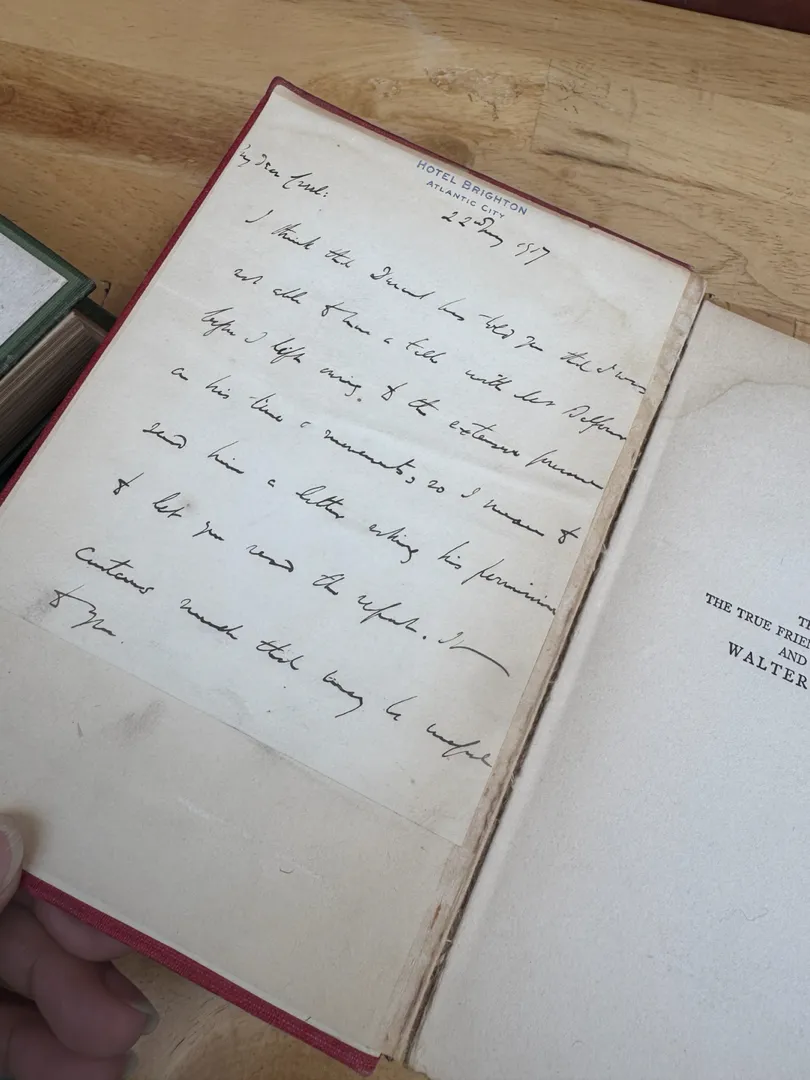 My dear
HOTEL BRIGHTON
ATLANTIC CITY
22nd May 1917
I think that has told you that I was
not able to have a talk with
before I left owing to the extreme pressure
on his time & movements, so I mean to
send him a letter asking his permission
to let you read the report. It
contains much that may be useful
to you.
THE TRUE FRIEN
AND
WALTER